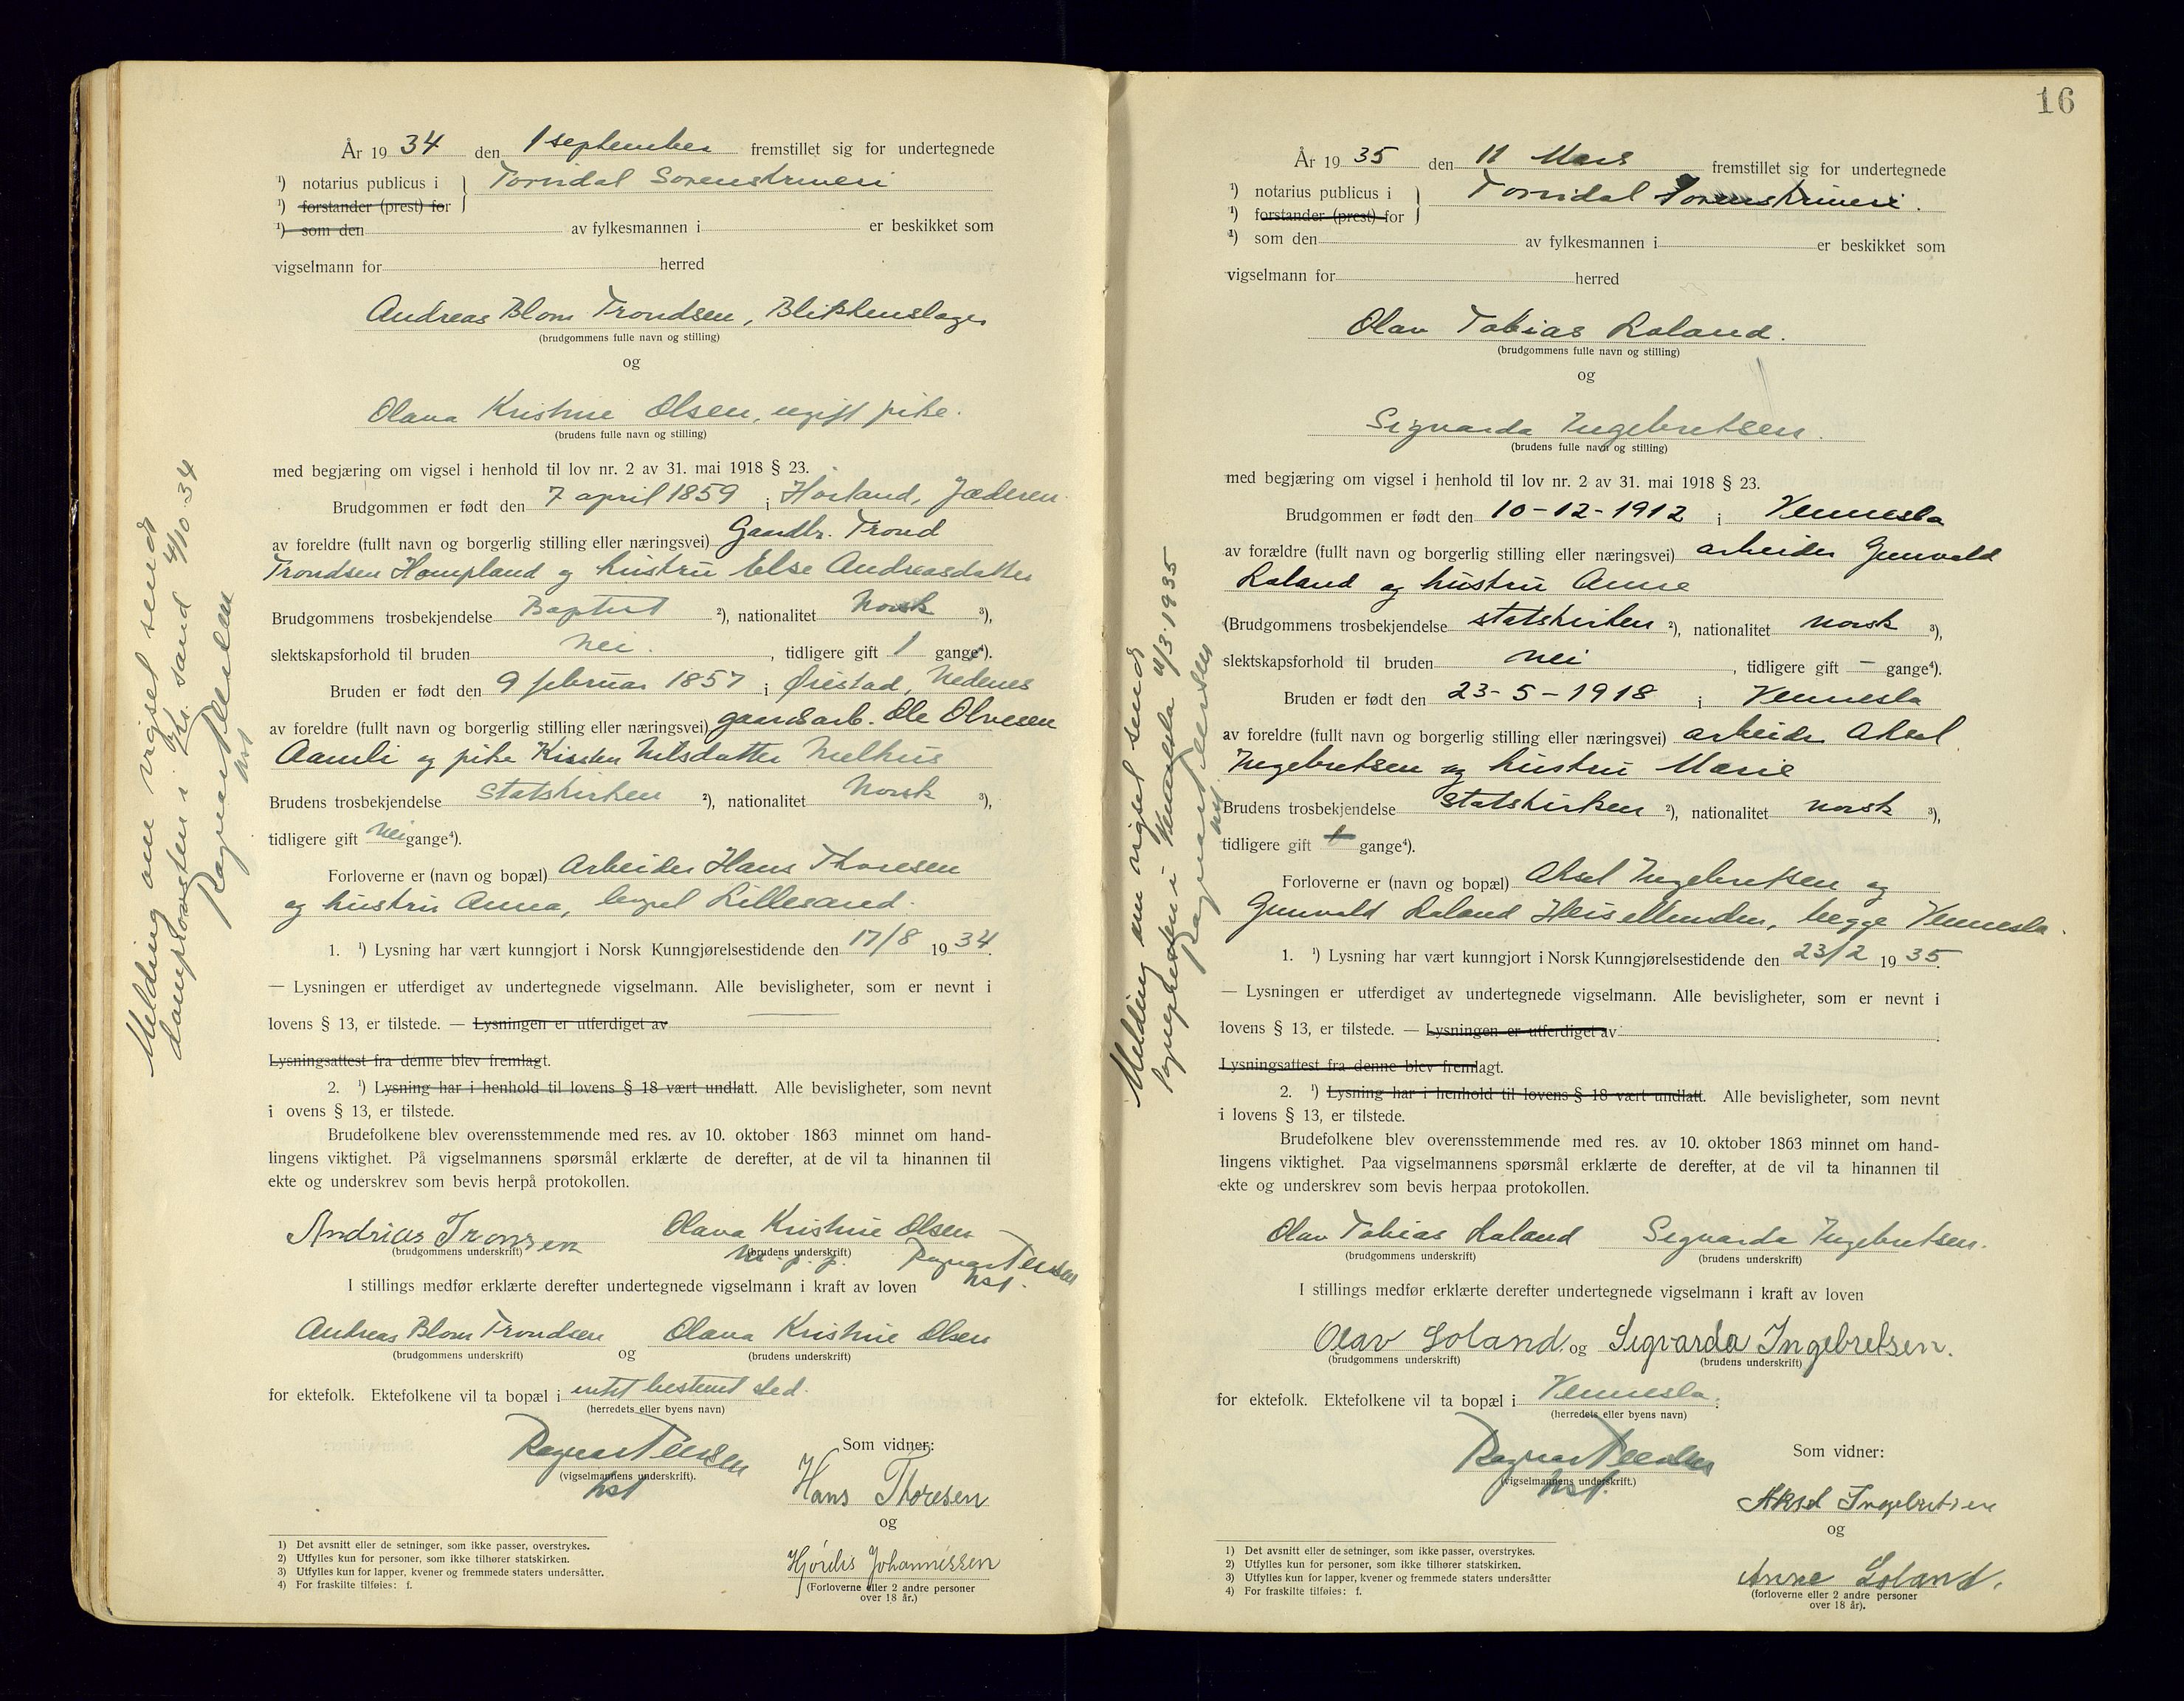 År 1934 den 1 september fremstillet sig for undertegnede
¹) notarius publicus i } Torridal Sorenskriveri
¹) forstander (prest) for
¹) som den av fylkesmannen i er beskikket som
vigselmann for herred
Andreas Blom Trondsen, Blikkenslager
(brudgommens fulle navn og stilling)
og
Olava Kristine Olsen, ugift pike.
(brudens fulle navn og stilling)
med begjæring om vigsel i henhold til lov nr. 2 av 31. mai 1918 § 23.
Brudgommen er født den 7 april 1859 i Høiland, Jæderen
av foreldre (fullt navn og borgerlig stilling eller næringsvei) Gaardbr. Trond
Trondsen Hompland og hustru Else Andreasdatter
Brudgommens trosbekjendelse Baptist ²), nationalitet Norsk ³),
slektskapsforhold til bruden nei. , tidligere gift 1 gange⁴).
Bruden er født den 9 februar 1857 i Øiestad, Nedenes
av foreldre (fullt navn og borgerlig stilling eller næringsvei) gaardsarb. Ole Olvesen
Aamli og pike Kirsten Nilsdatter
Brudens trosbekjendelse Statskirken ²), nationalitet Norsk ³),
tidligere gift nei gange⁴).
Forloverne er (navn og bopæl) Arbeider Hans Thoresen
og hustru Anna, bopæl Lillesand.
1. ¹) Lysning har vært kunngjort i Norsk Kunngjørelsestidende den 17/8 1934.
— Lysningen er utferdiget av undertegnede vigselmann. Alle bevisligheter, som er nevnt i
lovens § 13, er tilstede. — Lysningen er utferdiget av
Lysningsattest fra denne blev fremlagt.
2. ¹) Lysning har i henhold til lovens § 18 vært undlatt. Alle bevisligheter, som nevnt
i ovens § 13, er tilstede.
Brudefolkene blev overensstemmende med res. av 10. oktober 1863 minnet om hand-
lingens viktighet. På vigselmannens spørsmål erklærte de derefter, at de vil ta hinannen til
ekte og underskrev som bevis herpå protokollen.
Andrias Tronsen Olava Kristine Olsen
(brudgommens underskrift) (brudens underskrift)
m. p. p.
nst.
I stillings medfør erklærte derefter undertegnede vigselmann i kraft av loven
Andreas Blom Trondsen og Olava Kristine Olsen
(brudgommens underskrift) (brudens underskrift)
for ektefolk. Ektefolkene vil ta bopæl i intet bestemt sted.
(herredets eller byens navn)
Ragnar
(vigselmannens underskrift).
nst
Som vidner:
Hans Thoresen
og
Hjördis Johannessen
(Forloverne eller 2 andre personer
over 18 år.)
1) Det avsnitt eller de setninger, som ikke passer, overstrykes.
2) Utfylles kun for personer, som ikke tilhører statskirken.
3) Utfylles kun for lapper, kvener og fremmede staters undersåtter.
4) For fraskilte tilføies: f.
Melding om vigsel sendt
domprovsten i Kr. sand 4/10.34
Ragnar
nst
16
År 1935 den 11 Mars fremstillet sig for undertegnede
¹) notarius publicus i } Torridal Sorenskriveri.
¹) forstander (prest) for
¹) som den av fylkesmannen i er beskikket som
vigselmann for herred
Olav Tobias Loland.
(brudgommens fulle navn og stilling)
og
Sigvarda Ingebretsen.
(brudens fulle navn og stilling)
med begjæring om vigsel i henhold til lov nr. 2 av 31. mai 1918 § 23.
Brudgommen er født den 10-12-1912 i Vennesla
av forældre (fullt navn og borgerlig stilling eller næringsvei) arbeider Gunvald
Loland og hustru Anne
(Brudgommens trosbekjendelse statskirken ²), nationalitet norsk ³),
slektskapsforhold til bruden nei , tidligere gift — gange⁴).
Bruden er født den 23-5-1918 i Vennesla
av foreldre (fullt navn og borgerlig stilling eller næringsvei) arbeider Aksel
Ingebretsen og hustru Marie
Brudens trosbekjendelse Statskirken ²), nationalitet norsk ³),
tidligere gift gange⁴).
Forloverne er (navn og bopæl) Aksel Ingebretsen og
Gunvald Loland begge Vennesla.
1. ¹) Lysning har vært kunngjort i Norsk Kunngjørelsestidende den 23/2 1935.
— Lysningen er utferdiget av undertegnede vigselmann. Alle bevisligheter, som er nevnt i
lovens § 13, er tilstede. — Lysningen er utferdiget av
Lysningsattest fra denne blev fremlagt.
2. ¹) Lysning har i henhold til lovens § 18 vært undlatt. Alle bevisligheter, som nevnt
i lovens § 13, er tilstede.
Brudefolkene blev overensstemmende med res. av 10. oktober 1863 minnet om hand-
lingens viktighet. Paa vigselmannens spørsmål erklærte de derefter, at de vil ta hinannen til
ekte og underskrev som bevis herpaa protokollen.
Olav Tobias Loland Sigvarda Ingebretsen.
(brudgommens underskrift) (brudens underskrift)
I stillings medfør erklærte derefter undertegnede vigselmann i kraft av loven
Olav Loland. og Sigvarda Ingebretsen.
(brudgommens underskrift) (brudens underskrift)
for ektefolk. Ektefolkene vil ta bopæl i Vennesla.
(herredets eller byens navn)
Ragnar
(vigselmannens underskrift.)
nst.
Som vidner:
Aksel Ingebretsen
og
Anne Loland.
(forloverne eller 2 andre personer
over 18 år).
1) Det avsnitt eller de setninger, som ikke passer, overstrykes.
2) Utfylles kun for personer, som ikke tilhører statskirken.
3) Utfylles kun for lapper, kvener og fremmede staters undersåtter
4) For fraskilte tilføies: f.
Melding om vigsel sendt
sognepresten i Vennesla 11/3.1935
Ragnar
nst.